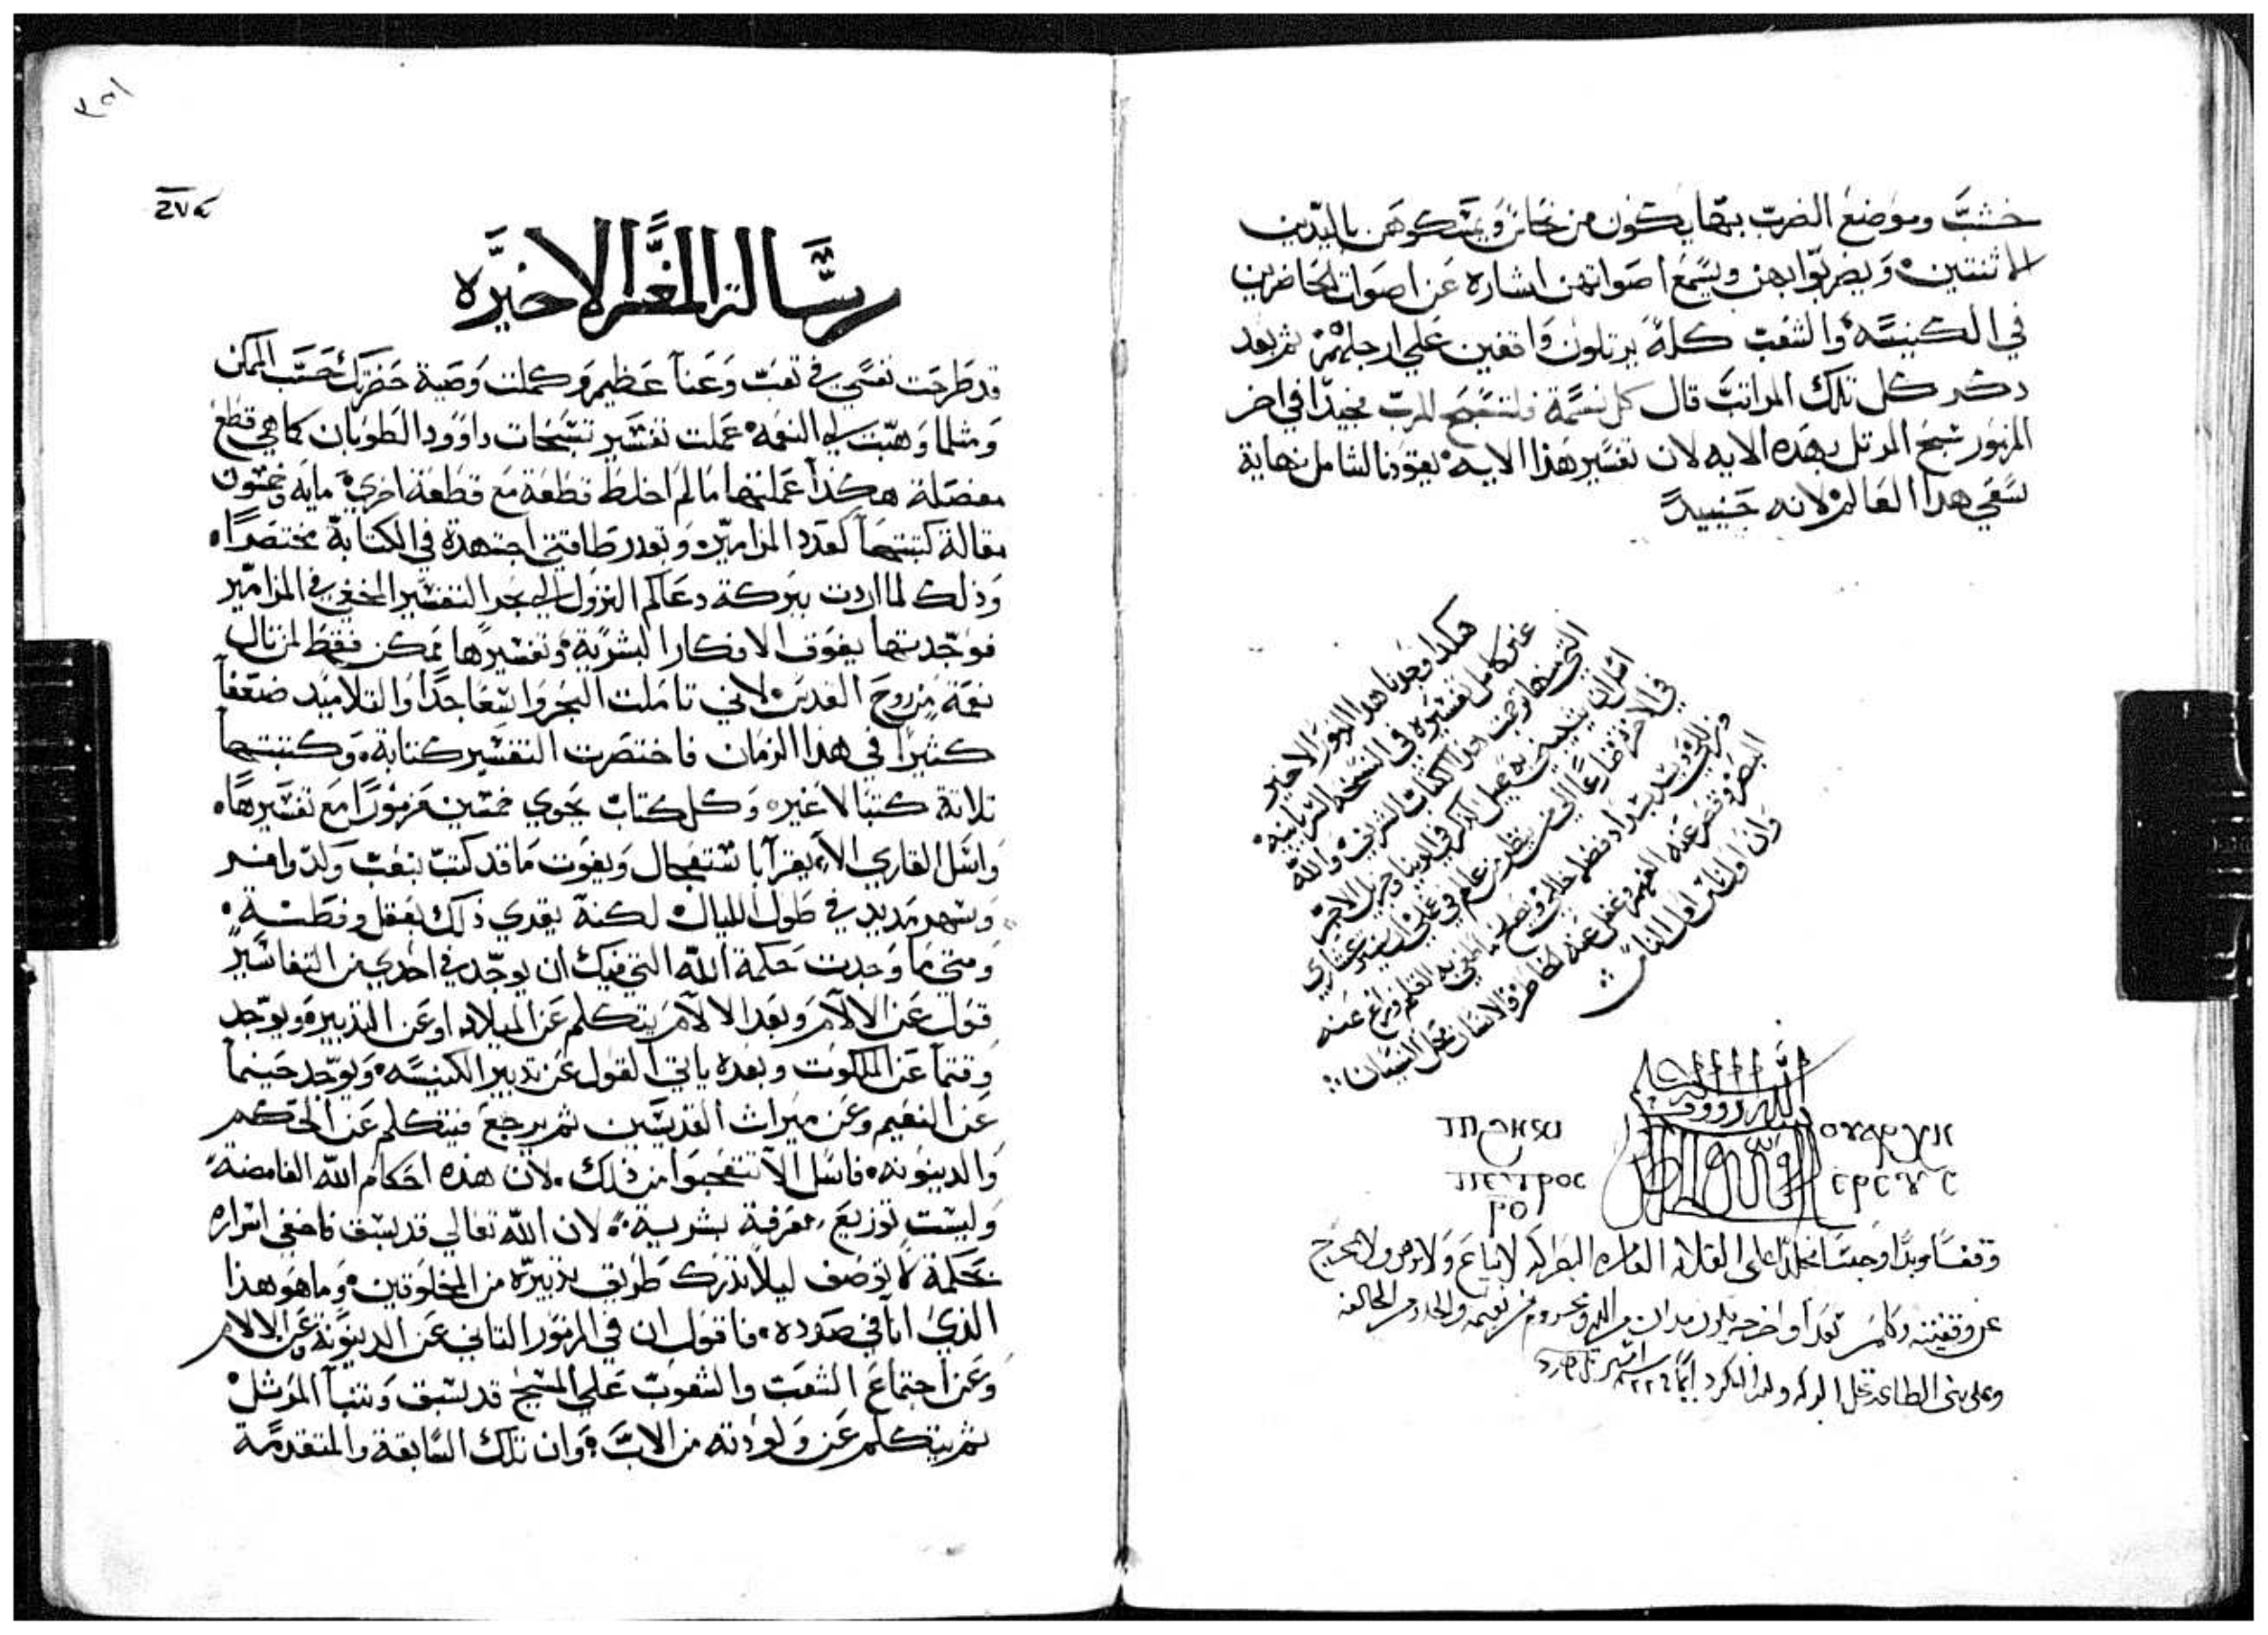 خشبَ وموضع الضرب بها يكون من نحاس ويمسكوهن باليدين
الاثنتين، ويضربوا بهن ويسمع اصواتهن اشاره عن اصوات الحاضرين
في الكنيسه والشعب كله يرتلون واقفين علي ارجلهم ثم بعد
دكر كل تلك المراتب قال كل نسمة فلتسبح للرب مجيدًا في اخر
المزمور سبح المرتل بهده الايه لان تفسير هذا الايه يعودنا لشامل نهاية
سعي هدا العالم لانه حينيدً
هكدا وجدنا هدا المزمور الاخير
غير كامل تفسيره في النسخه السريانيه
التي منها ترجمت هدا الكتاب الشريف والله
اسل ان يثيبني به جميل الدكر في الدنيا وجزيل الاجر
في الاخره ضارعًا الي من ينظر من عالم في
البصر وقصر عنه الفهم وغفل عنه الخاطر فالانسان محل النسيان
وان اول ناس اول الناس
الله رووف
وقفًا موبدًا وحبسًا مخلدًا على القلاية العامره البطركيه لا يباع ولا يرهن ولا يخرج
عن وقفيته وكلمن تعدا واخرجه يكون مدان من الله ومحروم من نعيمه والحدر من المخالفه
وعلى بني الطاعه تحل البركه ولله الشكر دايمًا
٢٧٤
رسالة المفسر الاخيره
قد طرحت نفسي في تعب وعنآ عظيم وكملت وصية حضرتك حسب الممكن
ومثلما وهبت لي النعمه عملت تفسير تسبحات داوود الطوبان كما هي قطع
مفصلة هكذا عملتها مالم اخلط قطعة مع قطعة اخري ماية وخمسون
مقالة كتبتها كعدد المزامير، وبقدر طاقتي اجتهدة في الكتابة مختصرًا،
وذلك لما اردت ببركة دعاكم النزول الي بحر التفسير المخفي في المزامير
فوجدتها يفوق الافكار البشرية وتفسيرها يمكن فقط لمن نال
نعمة من روح القدس لاني تاملت البحر واسعًا جدًا والتلاميد ضعفآ
كثيرًا في هدا الزمان فاختصرت التفسير كتابة، وكتبتها
تلاتة كتبًا لا غير، وكل كتاب يحوي خمسين مزمورًا مع تفسيرها،
واسل القاري الا يقرآ باستعجال ويفوت ما قد كتب بتعب ولد وافر
وسهر مديد في طول الليال لكنة يقدي ذلك بعقل وفطنة،
ومتي ما وجدت حكمة الله التي فيك ان يوجد في احدي من التفاسير
قول عن الالآم وبعد الالآم يتكلم عن الميلاد او عن التدبير، ويوجد
وقتمآ عن الملكوت وبعده ياتي القول عن تدبير الكنيسه، ويوجد حينمآ
عن النعيم وعن ميراث القديسين ثم يرجع فيتكلم عن الحكم
والدينونه، فاسل الا تتعجبوا من ذلك، لان هذه احكام الله الغامضة،
وليست توزيع معرفة بشرية، لان الله تعالي قد سبق فاخفي اسراره
بحكمة لا توصف ليلا تدرك طريق تدبيره من المخلوقين، وما هو هذا
الذي انا في صدده، فاقول ان في المزمور التاني عن الدينونة وعن الالام
وعن اجتماع الشعب والشعوب علي المسيح قد سبق وتنبآ المرسل
ثم يتكلم عن ولودته من الاب، وان تلك السابقة والمتقدمة